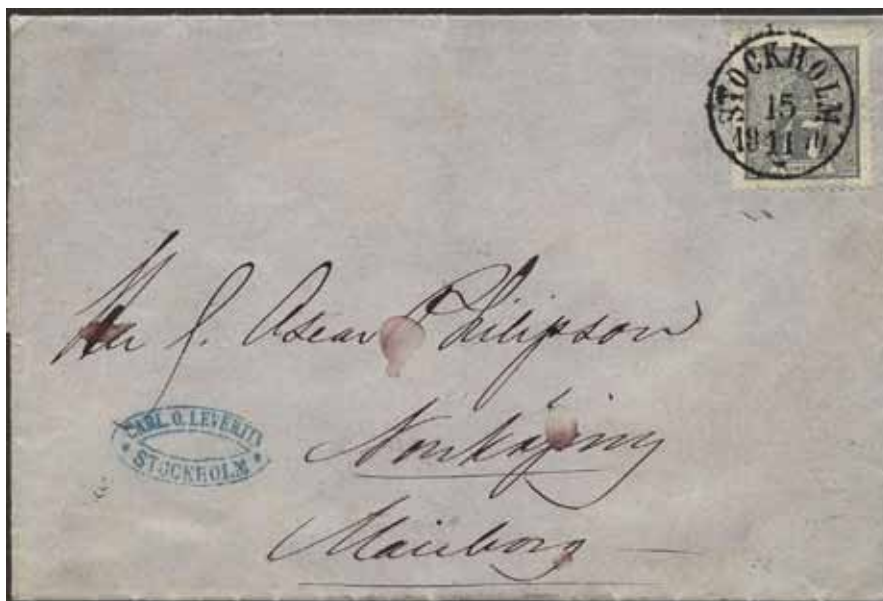 STOCKHOLM
15
18 11 70
17
Herr J. Oscar Philipson
Norrköping
Marieborg
CARL O. LEVERTIN
* STOCKHOLM *